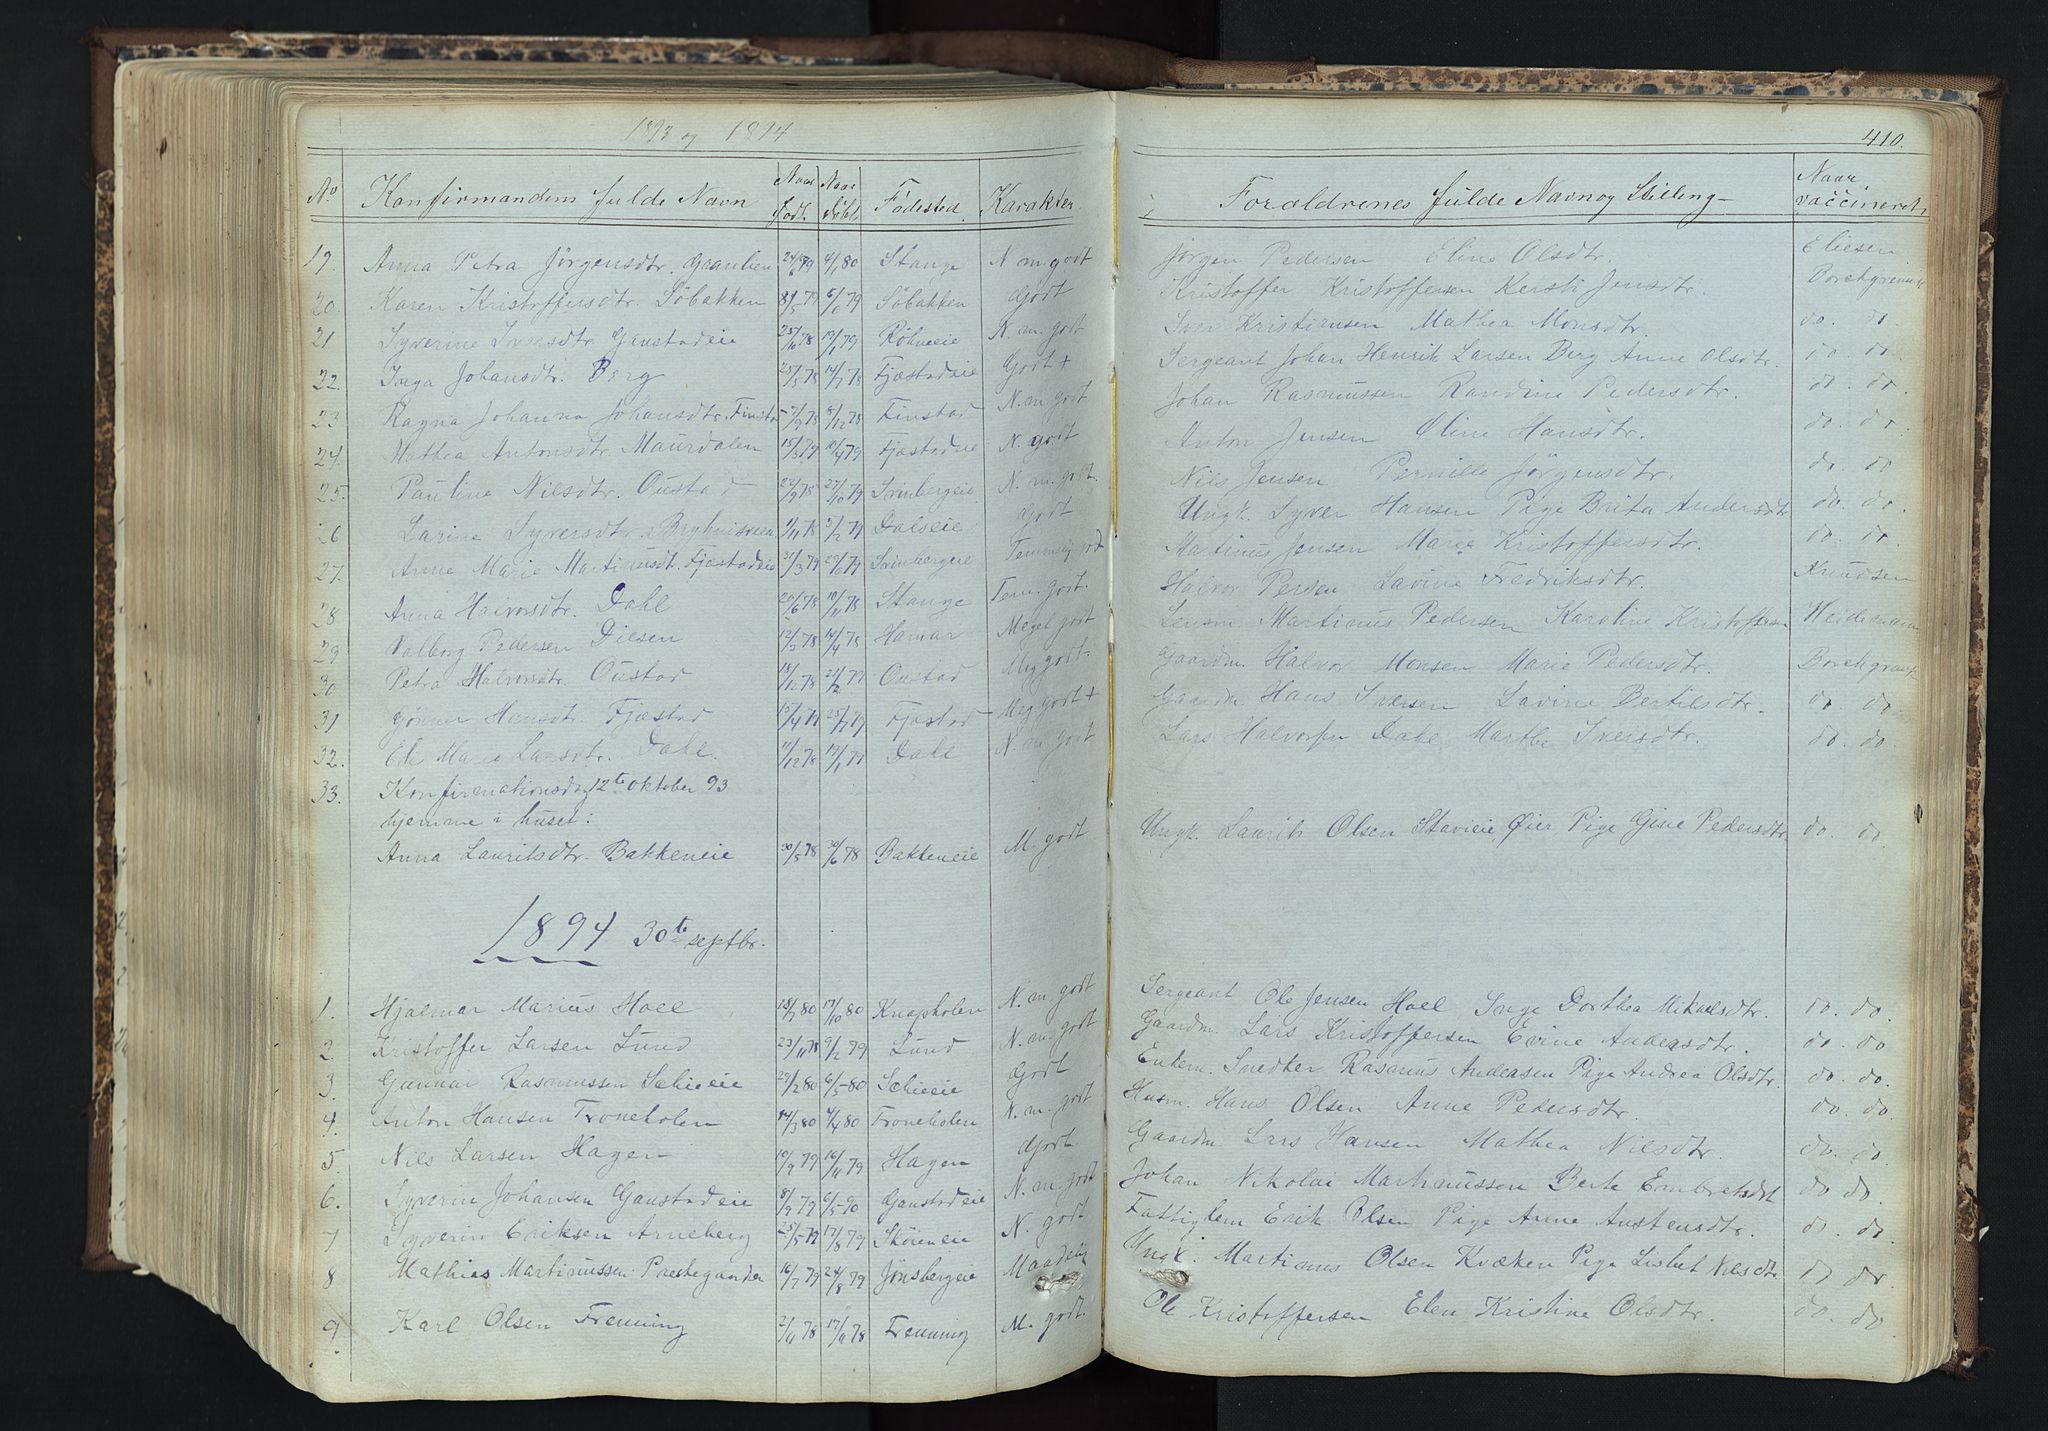 1893 og 1894
410.
No Konfirmandens fulde Navn Naar født. Naar døbt. Fødested. Karakter. Forældrenes fulde Navn og Stilling Naar vaccineret.
19. Anna Petra Jörgensdtr. 4/1 80 Stange N. m. godt Jörgen Pedersen Eline Olsdtr. Eliesen
20. Karen Kristoffersdtr. Söbakken 8/5 79 6/6 79 Söbakken Godt Kristoffer Kristoffersen Kersti Jensdtr. Borchgrevink
21 Syverine Iversdtr. Gaustadeie 25/10 78 19/1 79 Röhneeie N. m. godt Iver Kristiansen Mathea Monsdtr. do. do
22. Inga Johansdtr. Berg 25/5 78 14/7 78 Fjæstadeie Godt + Sergeant Johan Henrik Larsen Berg Anne Olsdtr. do. do.
23 Ragna Johanna Johansdtr. Finstad 7/9 78 8/12 78 Finstad N. m. godt Johan Rasmussen Randine Pedersdtr. do. do.
24. Mathea Antonsdtr. Maurdalen 15/3 79 10/4 79 Fjæstadeie N. godt Anton Jensen Oline Hansdtr. do. do.
25. Pauline Nilsdtr. Oustad 22/9 78 27/10 79 Svinbergeie N. m. godt. Nils Jensen Pernille Jörgensdtr. do. do
26 Larine Syversdtr. 9/11 78 2/2 79 Dalseie Godt Ungk. Syver Hansen Pige Brita Andersdtr do. do.
27. Anne Marie Martinusdt. Fjæstadeie 31/3 79 29/6 79 Svinbergeie Temmelig godt Martinus Jensen Marie Kristoffersdtr. do. do.
28 Anna Halvorsdtr. Dahl 20/6 78 10/11 78 Stange Tem. godt. Halvor Persen Lavine Fredriksdtr. Knudsen
29 Valborg Pedersen Diesen 12/3 78 14/4 78 Hamar Meget godt Lensm. Martinus Pedersen Karoline Kristoffersen Weidemann
30 Petra Halvorsdtr. Oustad 18/12 78 Oustad Meg godt. Gaardm. Halvor Monsen Marie Pedersdtr. Borchgrevink
31 Gönner Hansdtr. Fjæstad 15/4 79 25/7 79 Fjæstad Meg godt + Gaardm Hans Iversen Lavine Bertilsdtr. do. do.
32. Marie Larsdtr. Dahl. 11/12 78 19/1 79 Dahl N. m. godt Lars Halvorsen Dahl Marthe Iversdtr. do. do.
33. Konfirmationsdag 12te Oktober 93
hjemme i huset:
Anna Lauritsdtr. Bakkeneie 30/5 78 30/6 78 Bakkeneie M. godt Ungk. Laurits Olsen Stavieie, Øier Pige Gine Pedersdtr do. do.
1894 30te septbr.
1. Hjalmar Marius Hoel 18/7 80 17/10 80 Knapholen N. m. godt Sergeant Ole Jensen Hoel Inge Dorthea Mikaelsdtr. do. do.
2. Kristoffer Larsen Lund 23/11 78 9/2 79 Lund N. m. godt Gaardm. Lars Kristoffersen Evine Andersdtr. do. do
3. Gunnar Rasmussen Sælieeie 29/2 80 6/5 80 Sælieeie Godt Enkem. Snedker Rasmus Andersen Pige Andrea Olsdtr. do. do.
4. Anton Hansen Troneholen 14/3 80 4/4 80 Troneholen N. m. godt Husm. Hans Olsen Anne Pedersdtr. do. do.
5 Nils Larsen Hagen 19/9 79 16/11 79 Hagen Godt Gaardm Lars Hansen Mathea Nilsdtr. do. do.
6. Syverin Johansen Gaustadeie 8/9 79 Gaustadeie N. m. godt Johan Nikolai Martinussen Berte Embretsdt do do.
7 Syverin Eriksen Arneberg 25/5 79 17/8 79 Sköreneie N. godt Fattiglem Erik Olsen Pige Anne Austensdtr. do. do.
8 Mathias Martinussen Prestegaarden 16/7 79 24/8 79 Jönsbergeie Maadelig Ungk. Martinus Olsen Kvæken Pige Lisbet Nilsdtr do do.
9. Karl Olsen Frenning 2/11 78 17/11 78 Frenning M. godt. Ole Kristoffersen Elen Kristine Olsdtr. do. do.